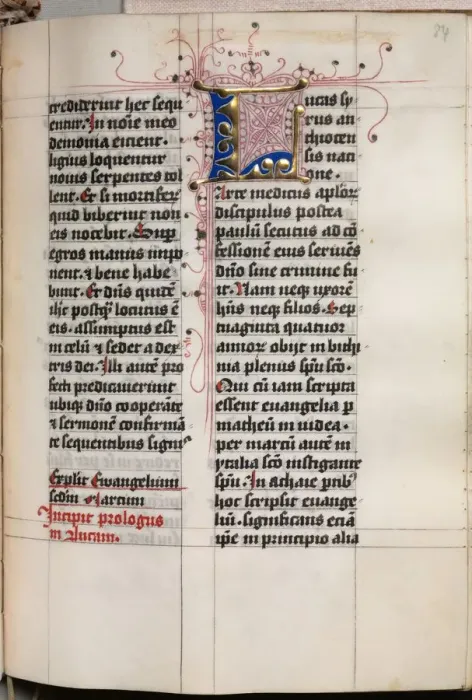 84
crediderint hec sequ
entur. In noīe meo
demonia eicient.
liguis loquentur
nouis serpentes tol
lent. Et si mortiferū
quid biberint non
eis nocebit. Sup
egros manus impo
nent. ⁊ bene habe
bunt. Et dn̄s quidē
ihc postq̄ locutus ē
eis. assumptus est
in celū ⁊ sedet a dex
tris dei. Illi autē pro
fecti predicauerunt
ubiq; dn̄o cooperāte
⁊ sermonē confirmā
te sequentibus signis
Explīt Ewangelium
scd̄m Marcum
Incipit prologus
in Lucam.
Lucas sy
rus an
thiocen
sis nati
one.
Arte medicus aplōꝝ
discipulus postea
paulū secutus ad cō
fessionē eius seruiēs
dn̄o sine crimine fu
it. Nam neq; uxorē
hn̄s neq; filios. Sep
tuaginta quatuor
annoꝝ obijt in bithi
nia plenus spū scō.
Qui cū iam scripta
essent euangelia ꝑ
matheū in iudea.
per marcū autē in
ytalia scō instigante
spū. In achaie ptib;
hoc scripsit euange
liū. significans eciā
ip̄e in principio alia